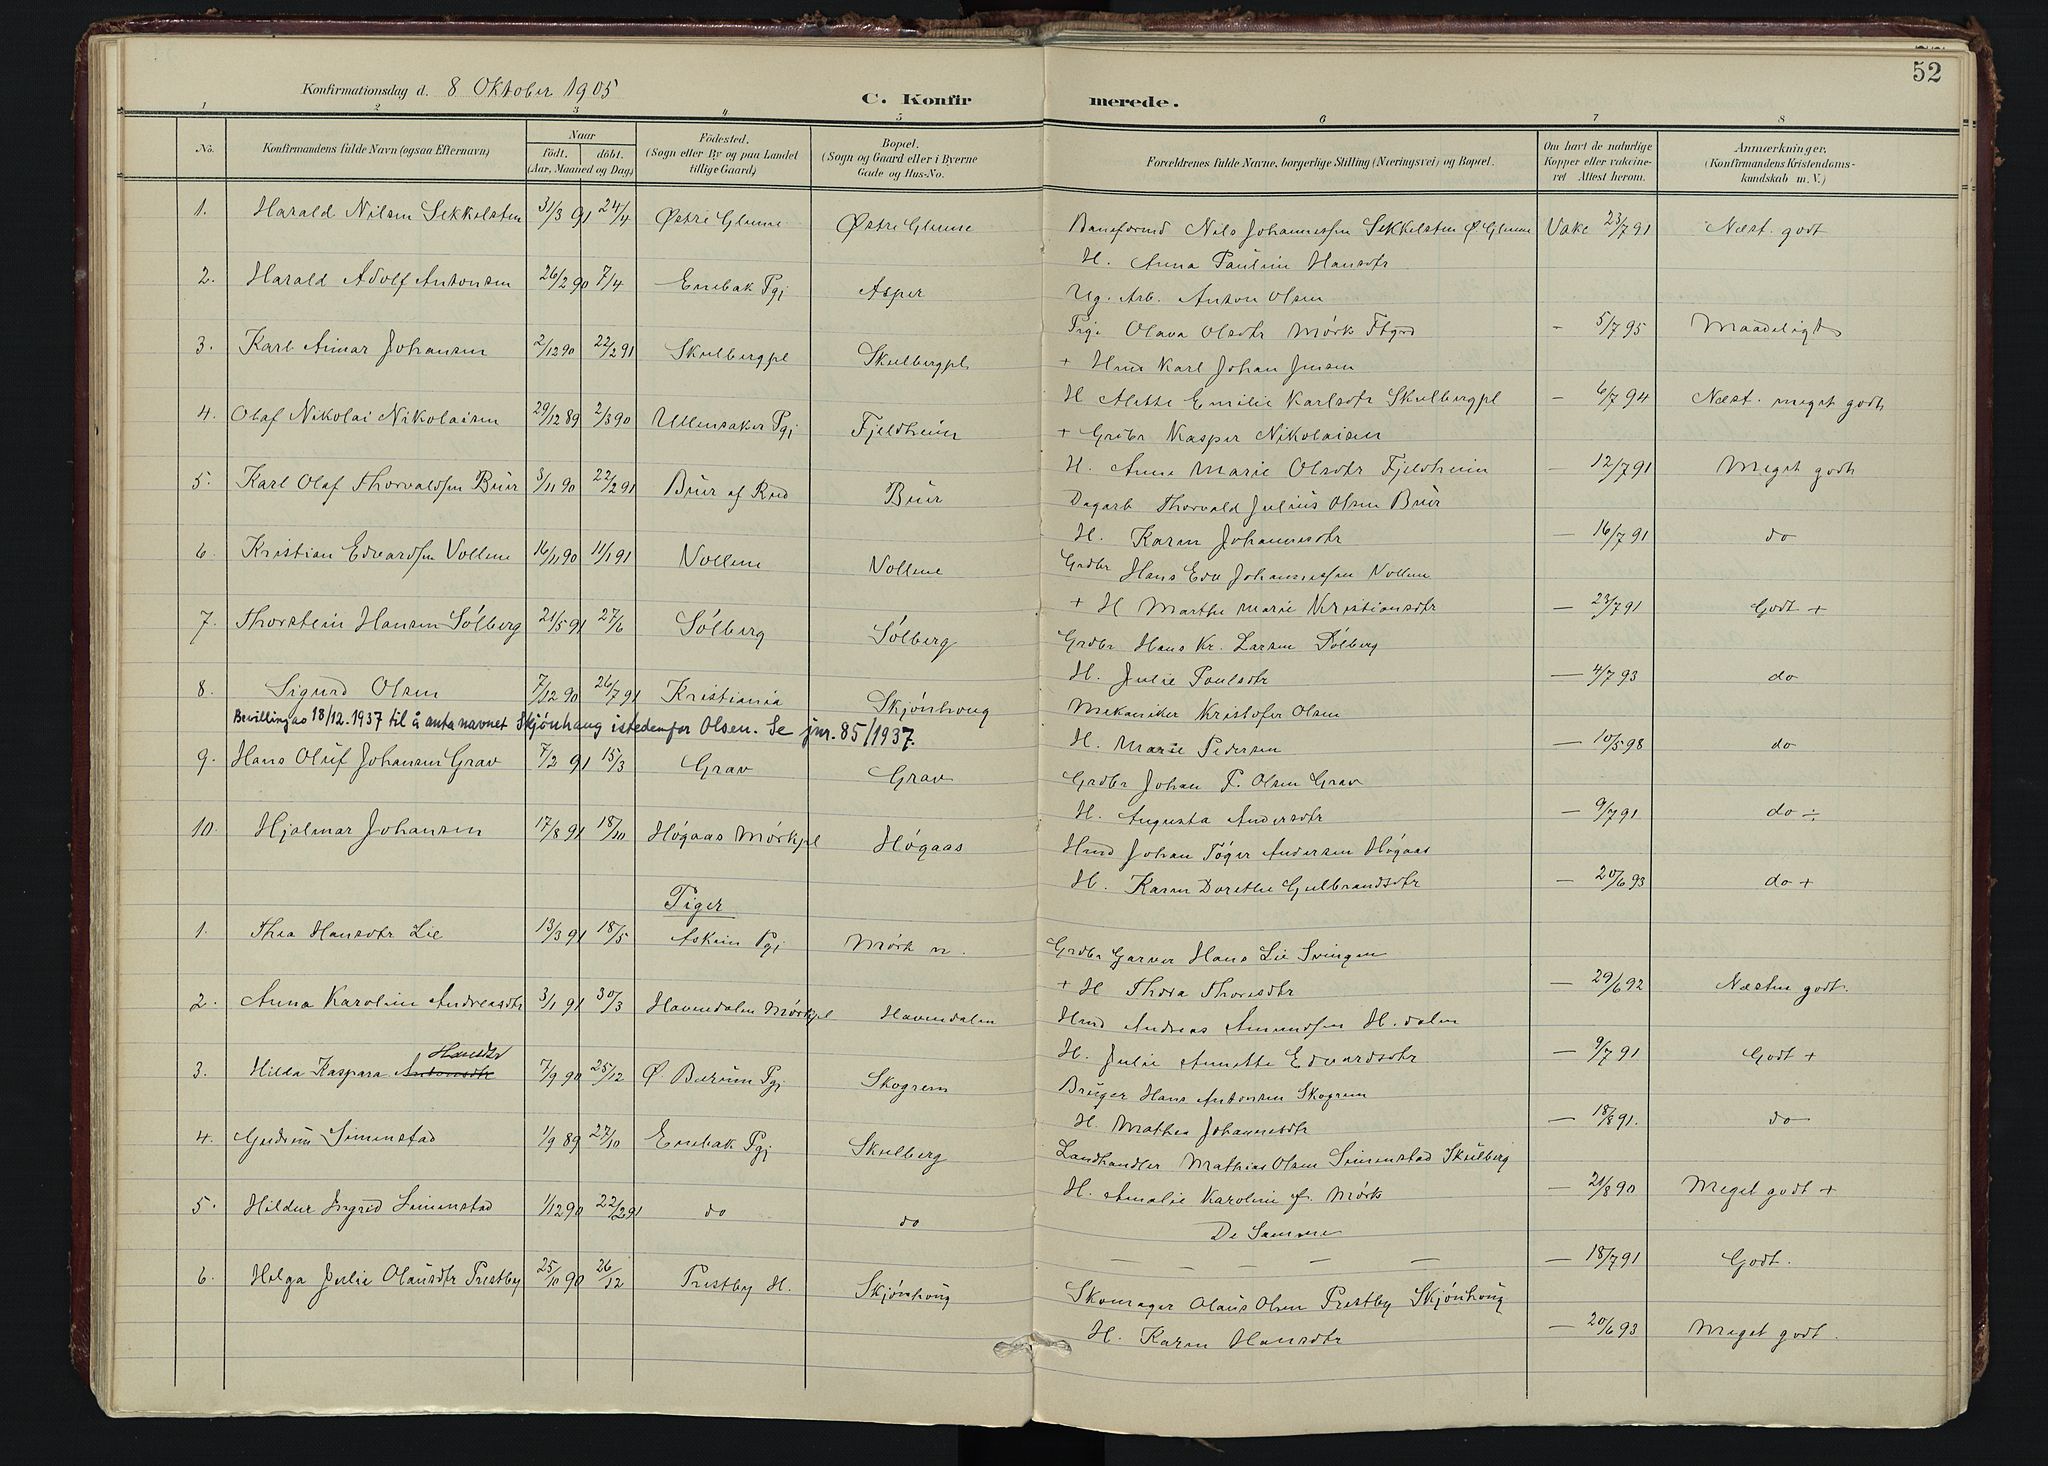 52
Konfirmationsdag d. 8 Oktober 1905
C. Konfirmerede.
1 2 3 4 5 6 7 8
No.
Konfirmandens fulde Navn (ogsaa Efternavn)
Naar
födt. döbt.
(Aar, Maaned og Dag)
Födested.
(Sogn eller By og paa Landet
tillige Gaard)
Bopæl.
(Sogn og Gaard eller i Byerne
Gade og Hus-No.
Forældrenes fulde Navne, borgerlige Stilling (Næringsvei) og Bopæl.
Om havt de naturlige
Kopper eller vaccine-
ret Attest herom.
Anmærkninger.
(Konfirmandens Kristendoms-
kundskab m. V.)
1. Harald Nilsen Sekkelsten 31/3 91 24/4 Østre Glenne Østre Glenne Baneformd Nils Johannessen Sekkelsten Ø Glenne Vake 23/7 91 Næst. godt
H. Anna Pauline Hansdtr
2. Harald Adolf Antonsen 26/2 90 7/4 Enebak Pgj Asper Ug. Arb. Anton Olsen
Pige Olava Olsdtr Mørk – 5/7 95 Maadeligt
3. Karl Aimar Johansen 2/12 90 22/2 91 Skulbergpl Skulbergpl + Hmd Karl Johan Jensen
H Alette Emilie Karlsdtr Skulbergpl – 6/7 94 Næst. meget godt
4. Olaf Nikolai Nikolaisen 29/12 89 2/3 90 Ullensaker Pgj Fjeldheim + Grdbr Kasper Nikolaisen
H. Anne Marie Olsdtr Fjeldheim – 12/7 91 Meget godt
5. Karl Olaf Thorvaldsen Buer 3/11 90 22/2 91 Buer af Rud Buer Dagarb Thorvald Julius Olsen Buer
H. Karen Johannesdtr – 16/7 91 do
6. Kristian Edvardsen Vollene 16/11 90 11/1 91 Vollene Vollene Grdbr Hans Edv Johannessen Vollene
+ H Marthe Marie Kristiansdtr – 23/7 91 Godt +
7. Thorstein Hansen Sólberg 21/5 91 27/6 Sólberg Sólberg Grdbr Hans Kr. Larsen Sólberg
H. Julie Paulsdtr – 4/7 93 do
8. Sigurd Olsen 7/12 90 26/7 91 Kristiania Skjónhoug Mekaniker Kristofer Olsen
Bevilling as 18/12. 1937 til å anta navnet Skjønhaug istedenfor Olsen. Se jnr. 85/1937.
H. Marie Pedersen – 10/5 98 do
9. Hans Oluf Johansen Grav 7/2 91 15/3 Grav Grav Grdbr Johan P. Olsen Grav
H. Augusta Andersdtr – 9/7 91 do ÷
10. Hjalmar Johansen 17/8 91 18/10 Hógaas Mórkpl Hógaas Hmd Johan Andersen Hógaas
H. Karen Dorethe Gulbrandsdtr – 20/6 93 do +
Piger
1. Thea Hansdtr Lie 13/3 91 18/5 Askim Pgj Mørk n. Grdbr Garver Hans Lie Svingen
+ H Thora Thorisdtr – 29/6 92 Næsten godt.
2. Anna Karoline Andreasdtr 3/1 91 30/3 Havendalen Mørkpl Havendalen Hmd Andreas Amundsen H.dalen
H. Julie Annette Edvardsdtr – 9/7 91 Godt +
Hansdtr
3. Hilda Kaspara Antonsdtr 7/9 90 25/12 Ø. Bærum Pgj Skogrem Bruger Hans Antonsen Skogrem
H. Mathea Johannesdtr – 18/8 91. do
4. Gudrun Simenstad 1/9 89 27/10 Enebak Pgj Skulberg Landhandler Mathias Olsen Simenstad Skulberg
H. Amalie Karoline f. Mørk – 21/8 90 Meget godt +
5. Hildur Ingrid Simenstad 1/12 90 22/2 91 do do De Samme
– – – – – 18/7 91 Godt.
6. Helga Julie Olausdtr Prestby 25/10 90 26/12 Prestby H. Skjónhoug Skomager Olaus Olsen Prestby Skjónhoug
H. Karen Hansdtr – 20/6 93 Meget godt.